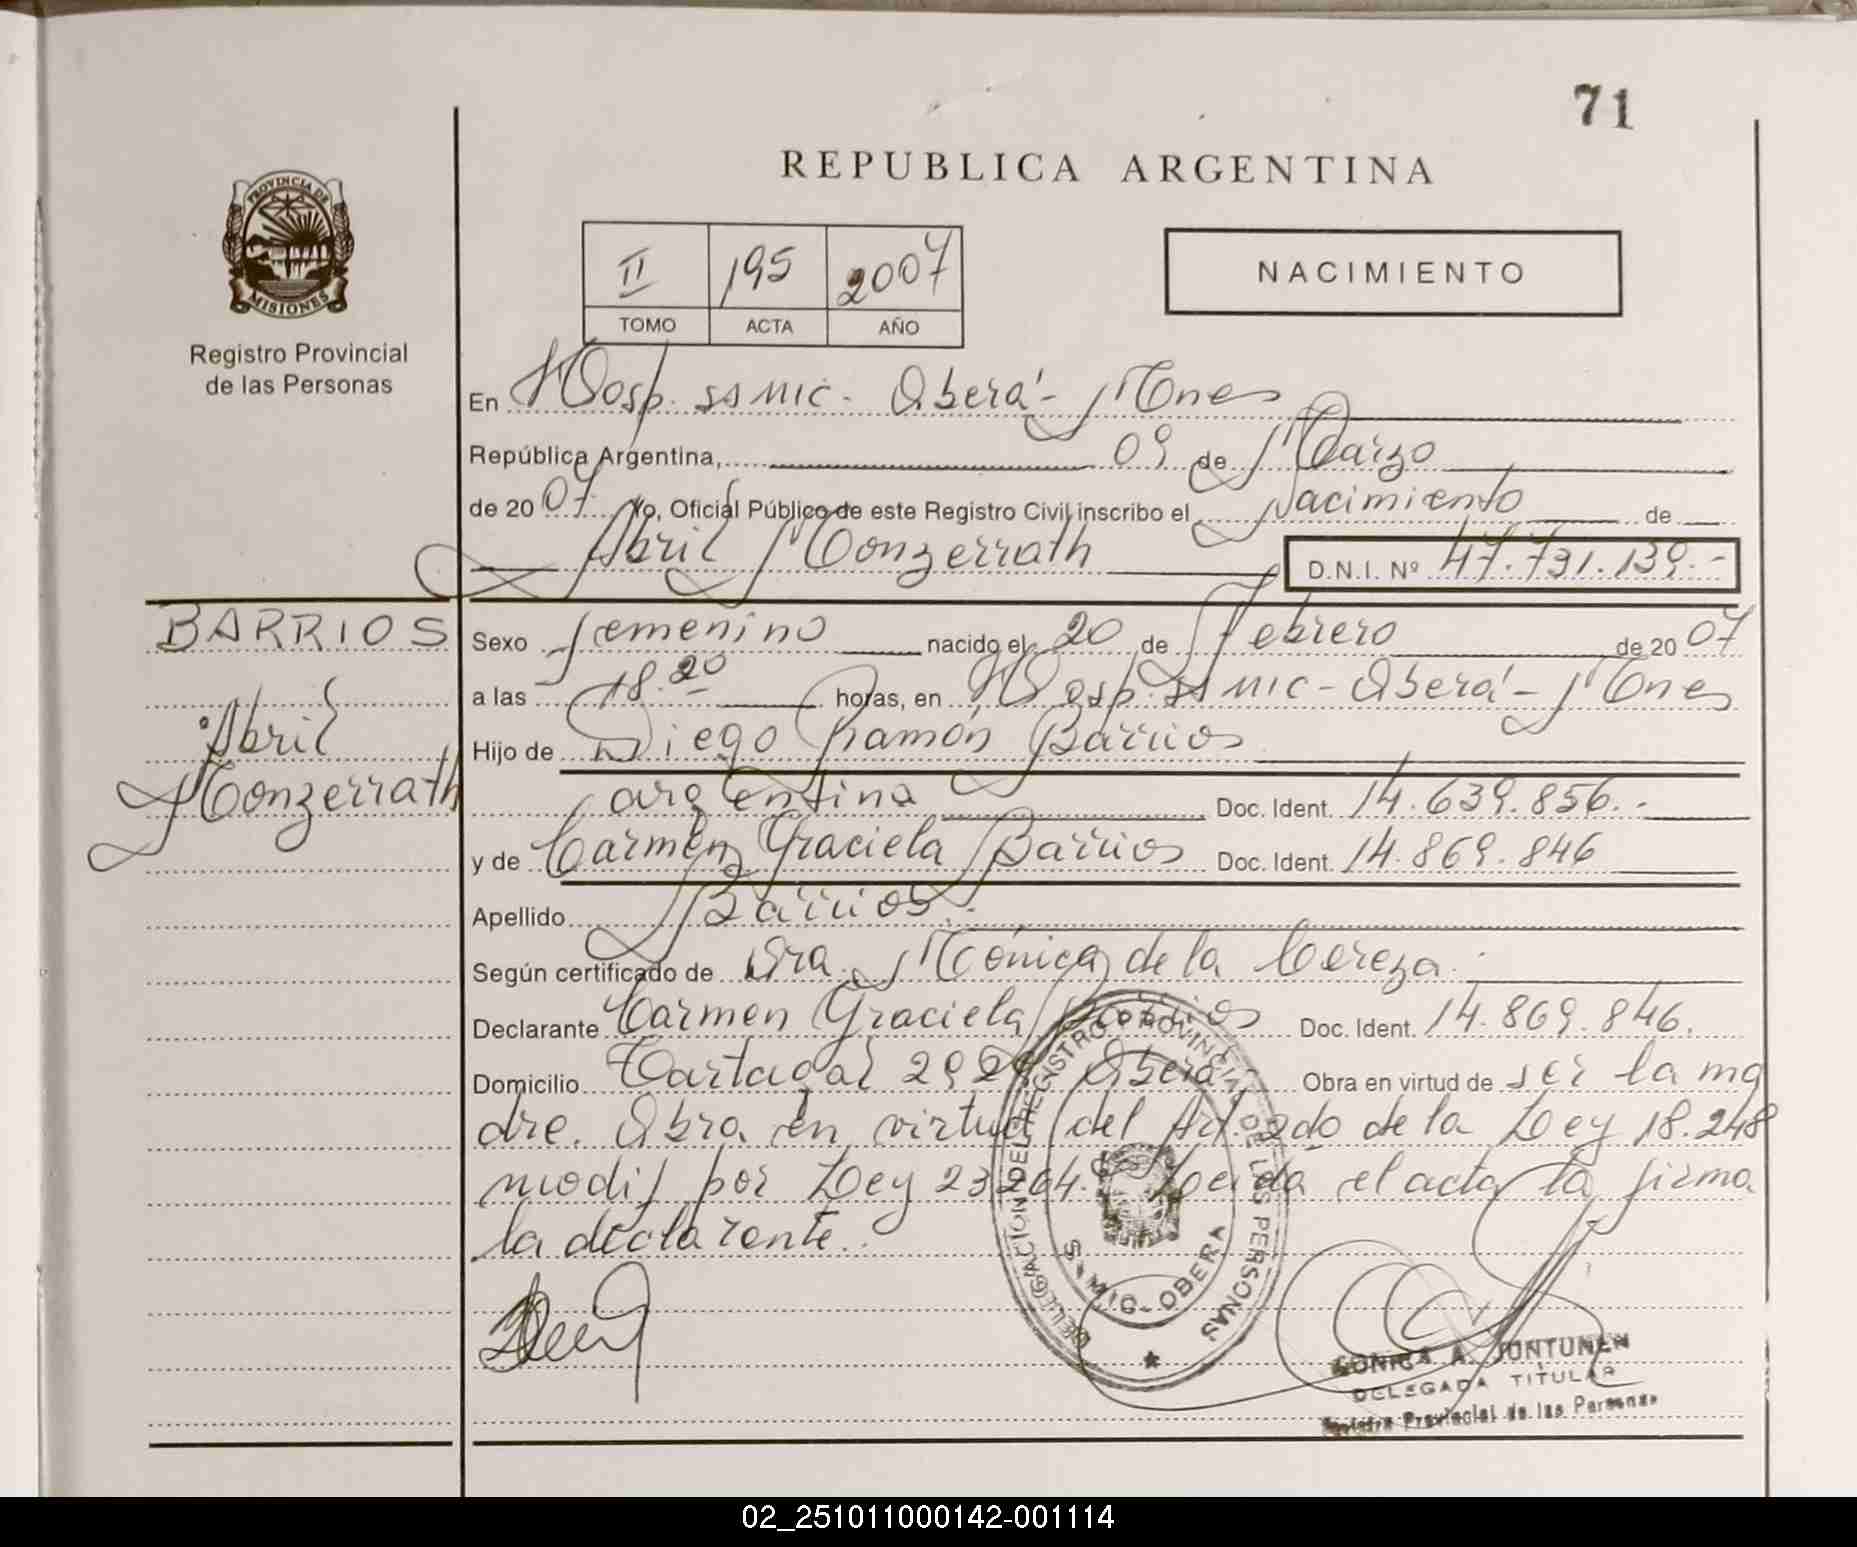 71
REPUBLICA ARGENTINA
PROVINCIA DE
MISIONES
Registro Provincial
de las Personas
II 195 2007
TOMO ACTA AÑO
NACIMIENTO
En Hosp. SSMIC - Oberá - Mnes
República Argentina, 09 de Marzo
de 2007 Yo, Oficial Público de este Registro Civil inscribo el Nacimiento de
Abril Monzerrath D.N.I. Nº 47.731.139.-
BARRIOS
Abril
Monzerrath
Sexo femenino nacido el 20 de Febrero de 2007
a las 18.20 horas, en Hosp. SSMIC - Oberá - Mnes
Hijo de Diego Ramón Barrios
argentina Doc. Ident. 14.639.856.-
y de Carmen Graciela Barrios Doc. Ident. 14.869.846
Apellido Barrios.-
Según certificado de Dra. Mónica de la Cereza.
Declarante Carmen Graciela Barrios Doc. Ident. 14.869.846.
Domicilio Tartagal Oberá Obra en virtud de ser la ma
dre. Obra en virtud del Art. 2do de la Ley 18.248
modif por Ley 23264. Leida el acta la firma
la declarante.
DELEGACION DEL REGISTRO PROVINCIAL DE LAS PERSONAS
S.MIC-OBERA
MONICA A. JUNTUNEN
DELEGADA TITULAR
Registro Provincial de las Personas
02_251011000142-001114